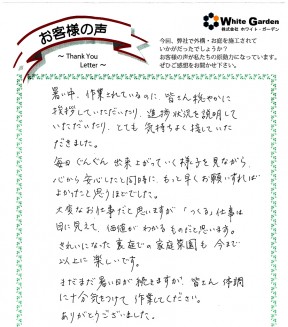 お客様の声
~ Thank You
Letter ~
White Garden
株式会社 ホワイト・ガーデン
今回、弊社で外構・お庭を施工されて
いかがだったでしょうか?
お客様の声が私たちの原動力になっています。
ぜひご感想をお聞かせ下さい。
暑い中、作業されているのに、皆さん爽やかに
挨拶していただいたり、進捗状況を説明して
いただいたり、とても気持ちよく接していた
だきました。
毎日ぐんぐん出来上がっていく様子を見ながら、
心から安心したと同時に、もっと早くお願いすれば
よかったと思うほどでした。
大変なお仕事だと思いますが「つくる」仕事は
目に見えて、価値がわかるものだと思います。
きれいになった裏庭での家庭菜園も今まで
以上に楽しいです。
まだまだ暑い日が続きますが、皆さん体調
に十分気をつけて作業してください。
ありがとうございました。